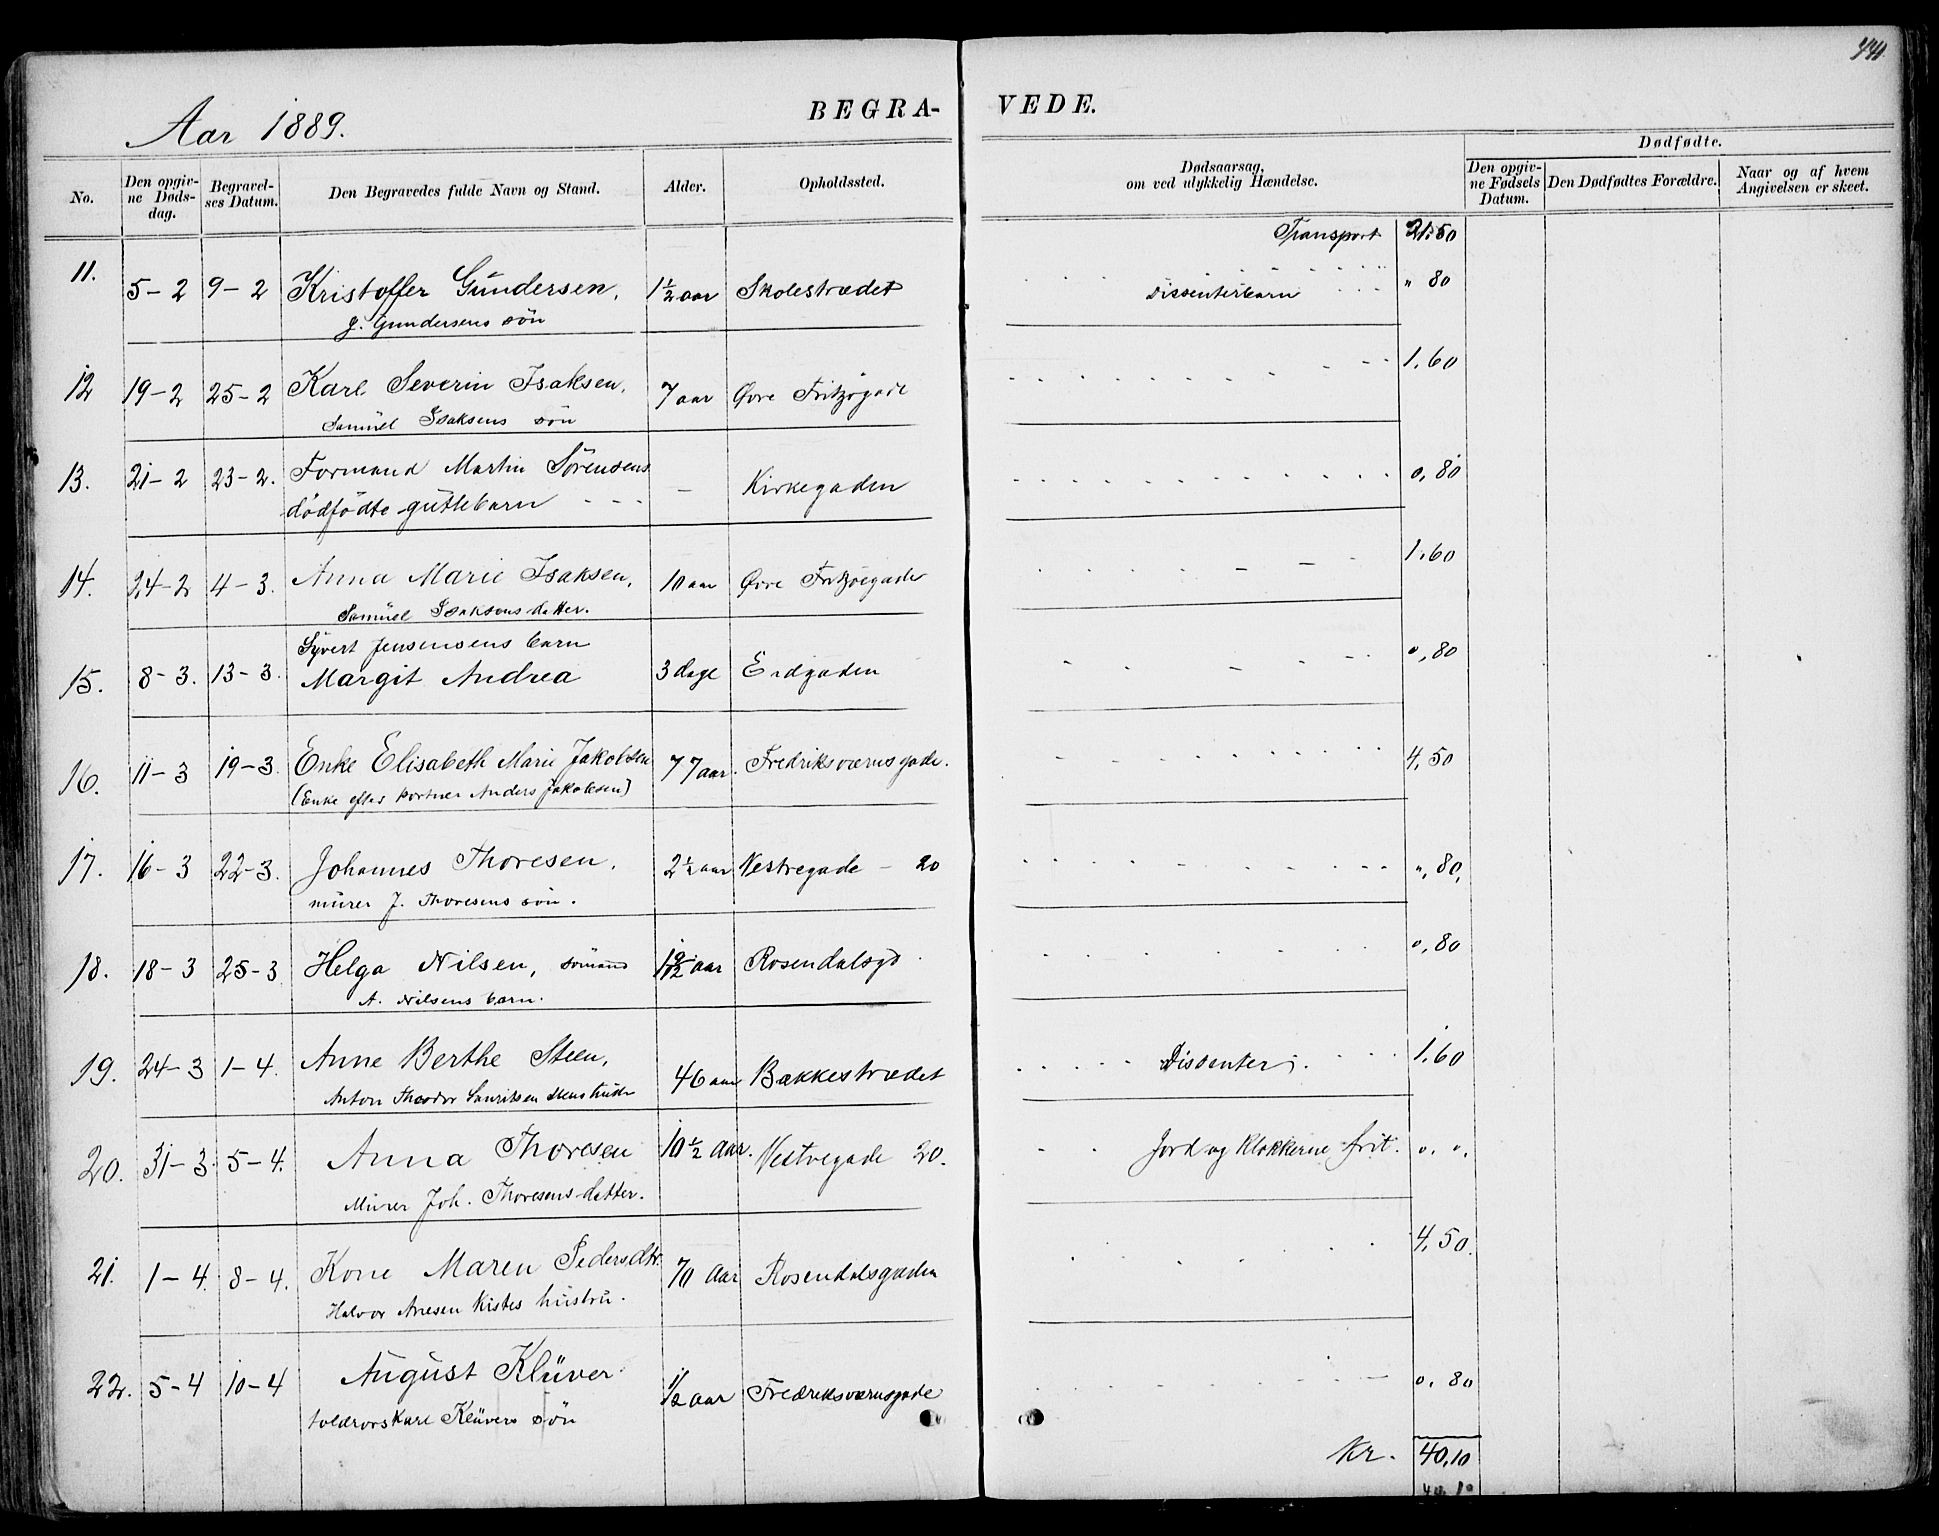 441.
Aar 1889.
BEGRA-VEDE.
No. Den opgivne Dødsdag. Begravelses Datum. Den Begravedes fulde Navn og Stand. Alder. Opholdssted. Dødsaarsag, om ved ulykkelig Hændelse. Dødfødte. Den opgivne Fødsels Datum. Den Dødfødtes Forældre. Naar og af hvem Angivelsen er skeet.
Transport 21.50
11. 5-2 9-2 Kristoffer Gundersen, 1½ aar Skolestrædet Dissenterbarn " 80
G. Gundersens søn
12 19-2 25-2 Karl Severin Isaksen, 7 aar Øvre Fritzøgade 1.60
Samuel Isaksens søn
13. 21-2 23-2. Formand Martin Sörensens - Kirkegaden 0,80
dödfödte guttebarn - - -
14. 24-2 4-3. Anna Marie Isaksen, 10 aar Øvre Fritzøegade 1.60
Samuel Isaksens datter.
Syvert Jensensens barn
15. 8-3. 13-3. Margit Andrea 3 dage Eidgaden 0,80
16. 11-3 19-3. Enke Elisabeth Marie Jakobsen 77 aar. Fredriksværnsgade. 4,50
(Enke efter portner Anders Jakobsen)
17. 16-3 22-3. Johannes Thoresen, 2½ aar Vestregade - 20 ", 80,
murer J. Thoresens søn.
18. 18-3 25-3 Helga Nilsen, sömand 1 9/12 aar Rosendalsgd. 0,80
A. Nilsens barn.
19. 24-3 1-4. Anne Berthe Steen, 46 aar Bakkestrædet Dissenter 1.60
Anton Theodor Lauritsen Steens hustru
20. 31-3. 5-4. Anna Thoresen 10½ Aar. Vestregade 20. Jord og Klokkerne frit. 0. 0.
Murer Joh. Thoresens datter.
21. 1-4. 8-4. Kone Maren Pedersdtr. 70 Aar Rosendalsgaden 4,50.
Halvor Anesen Kistes hustru.
22. 5-4 10-4 August Klüver ½ aar Fredriksværnsgade 0. 80
toldrorskarl Klüvers søn
Kr. 40,10